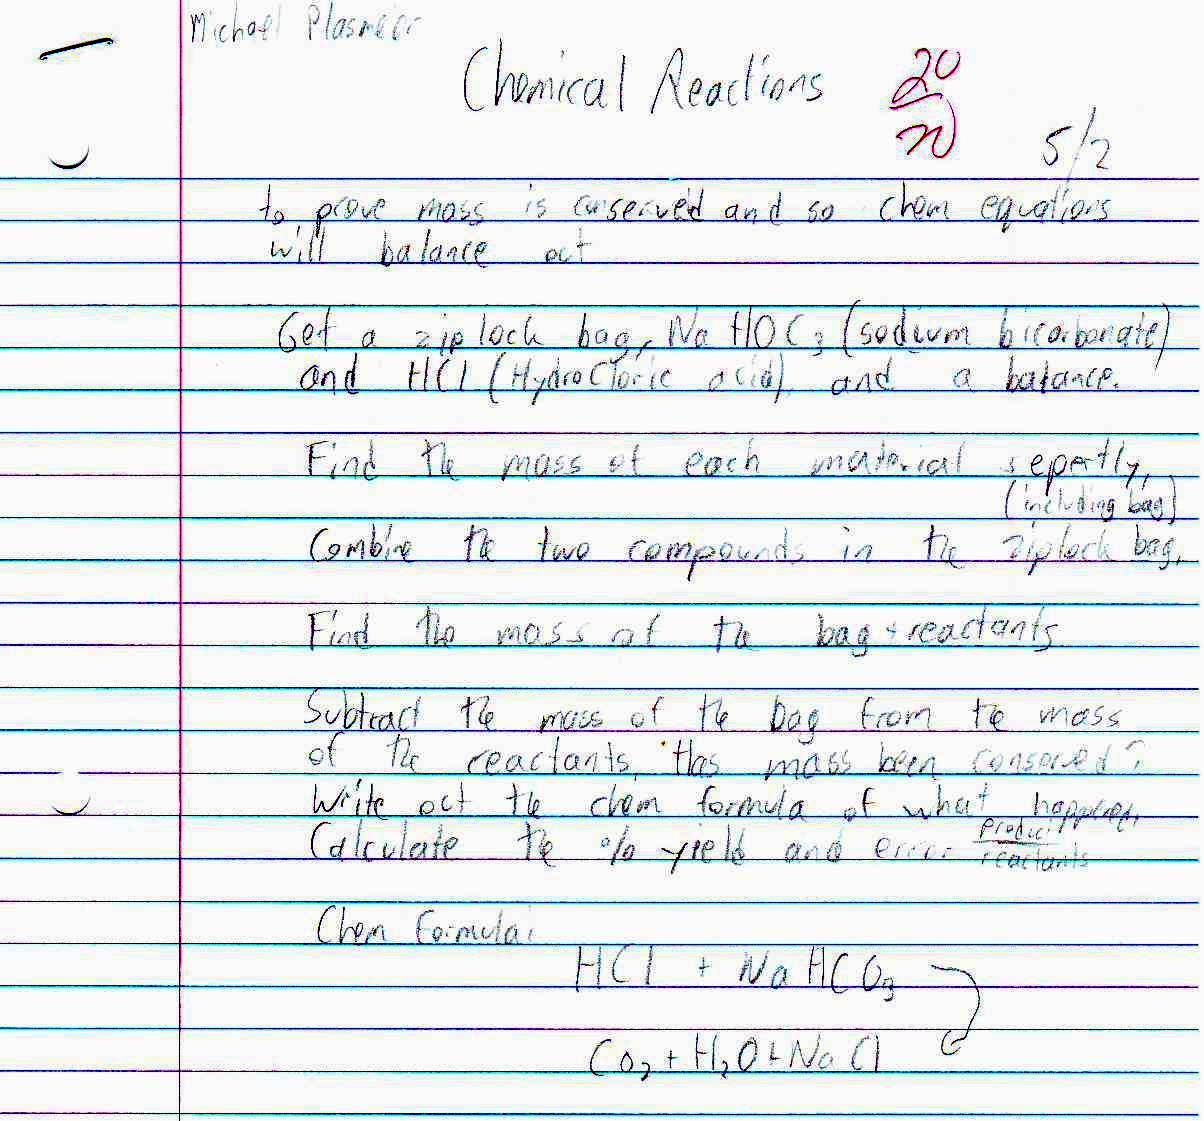 Michael Plasmeier
Chemical Reactions
20
20
5/2
to prove mass is conserved and so chem equations
will balance out
Get a ziplock bag, NaHOC₃ (sodium bicarbonate)
and HCl (HydroCloric acid), and a balance.
Find the mass of each material sepertly,
(including bag)
Combine the two compounds in the ziplock bag.
Find the mass of the bag + reactants
Subtract the mass of the bag from the mass
of the reactants. Has mass been conserved?
Write out the chem formula of what happened.
Calculate the % yield and error product
reactants
Chem Formula:
HCl + NaHCO₃
CO₂ + H₂O + NaCl